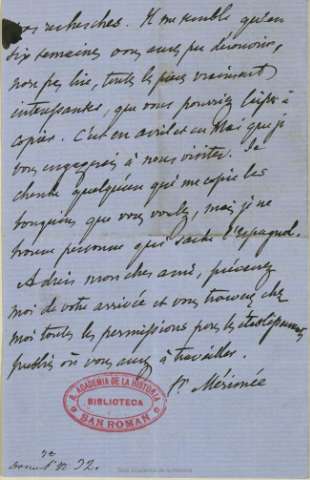 vos recherches. Il me semble qu'en
six semaines vous aurez pu découvrir,
non pas lire, toutes les pièces vraiment
intéressantes, que vous pourriez laisser à
copier. C'est en avril et en Mai que je
vous engagerais à nous visiter. Je
cherche quelqu'un qui me copie les
bouquins que vous voulez, mais je ne
trouve personne qui sache l'espagnol.
Adieu mon cher ami, prévenez
moi de votre arrivée et vous trouverez chez
moi toutes les permissions pour les
publics où vous aurez à travailler.
Pr Mérimée
R. ACADEMIA DE LA HISTORIA
BIBLIOTECA
SAN ROMAN
32.
Real Academia de la Historia